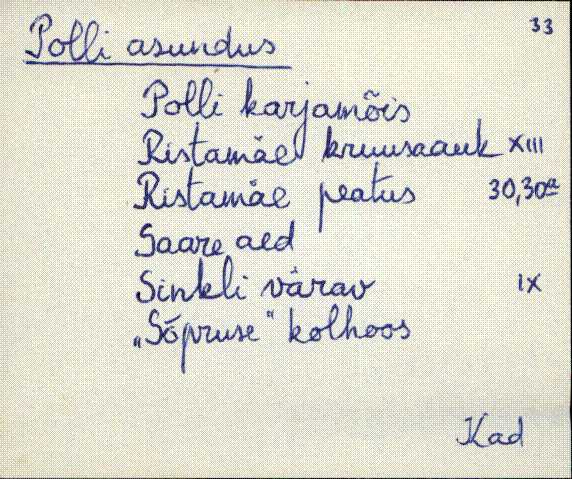 33
Polli asundus
Polli karjamõis
Ristamäe kruusaauk XIII
Ristamäe peatus 30,30a
Saare aed
Sinkli värav IX
„Sõpruse" kolhoos
Kad